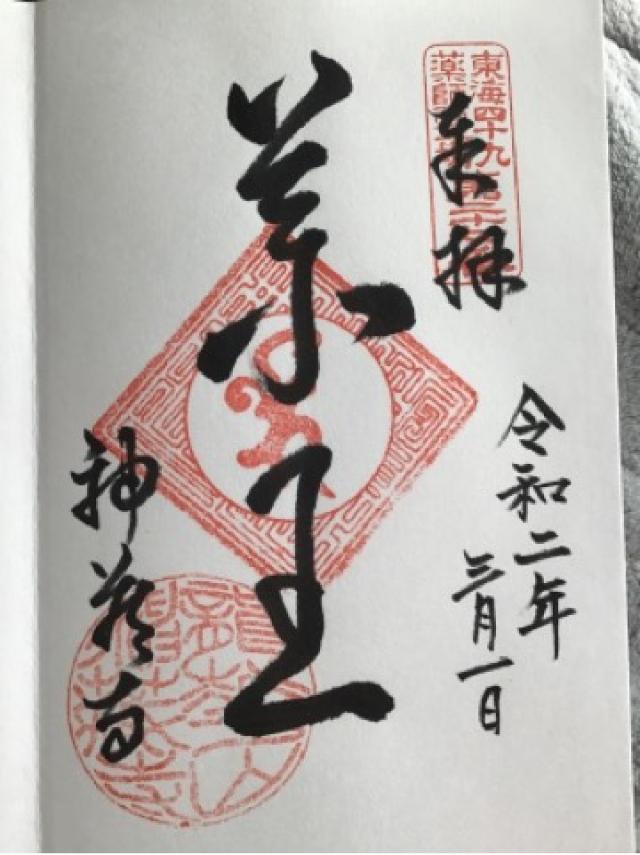 東海四十九
薬師
奉拝
令和二年
三月一日
薬王
神蔵寺